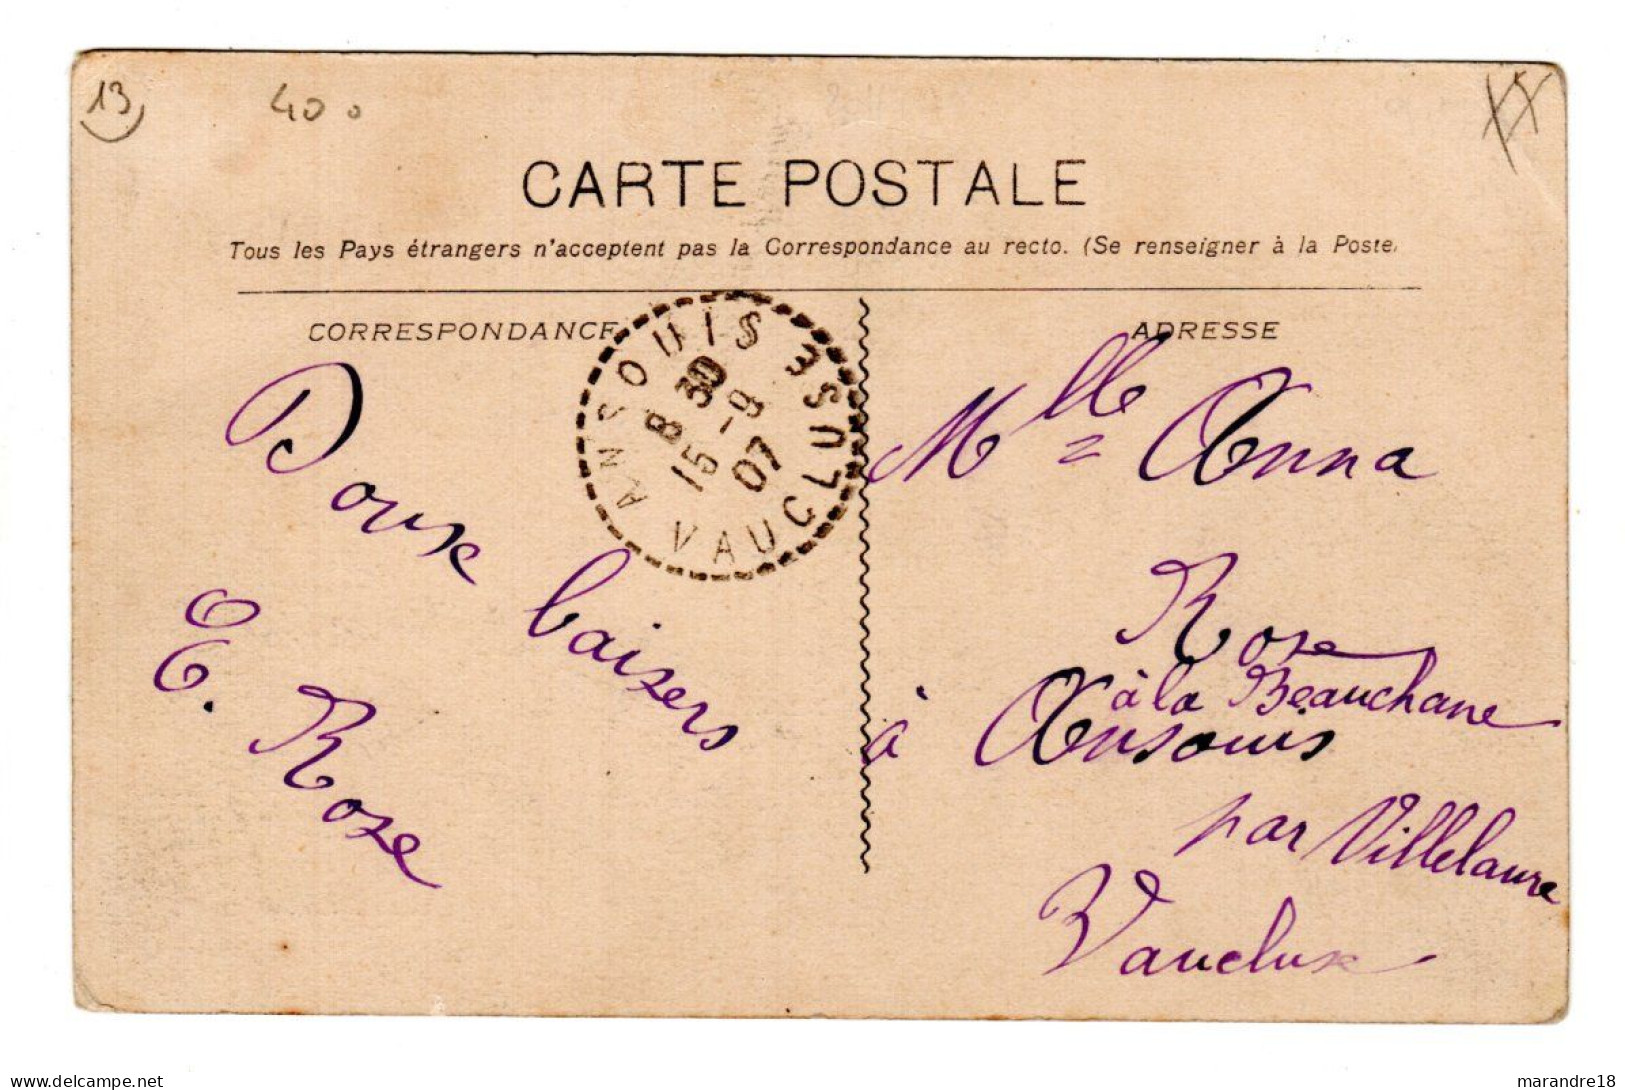 13
40
CARTE POSTALE
Tous les Pays étrangers n'acceptent pas la Correspondance au recto. (Se renseigner à la Poste)
CORRESPONDANCE
ANSOUIS
8 30
15 -9
07
VAUCLUSE
Doux baisers
E. Rose
ADRESSE
Mlle Anna
Rose
à la Beauchane
à Ansouis
par Villelaure
Vaucluse
delcampe.net
marandre18